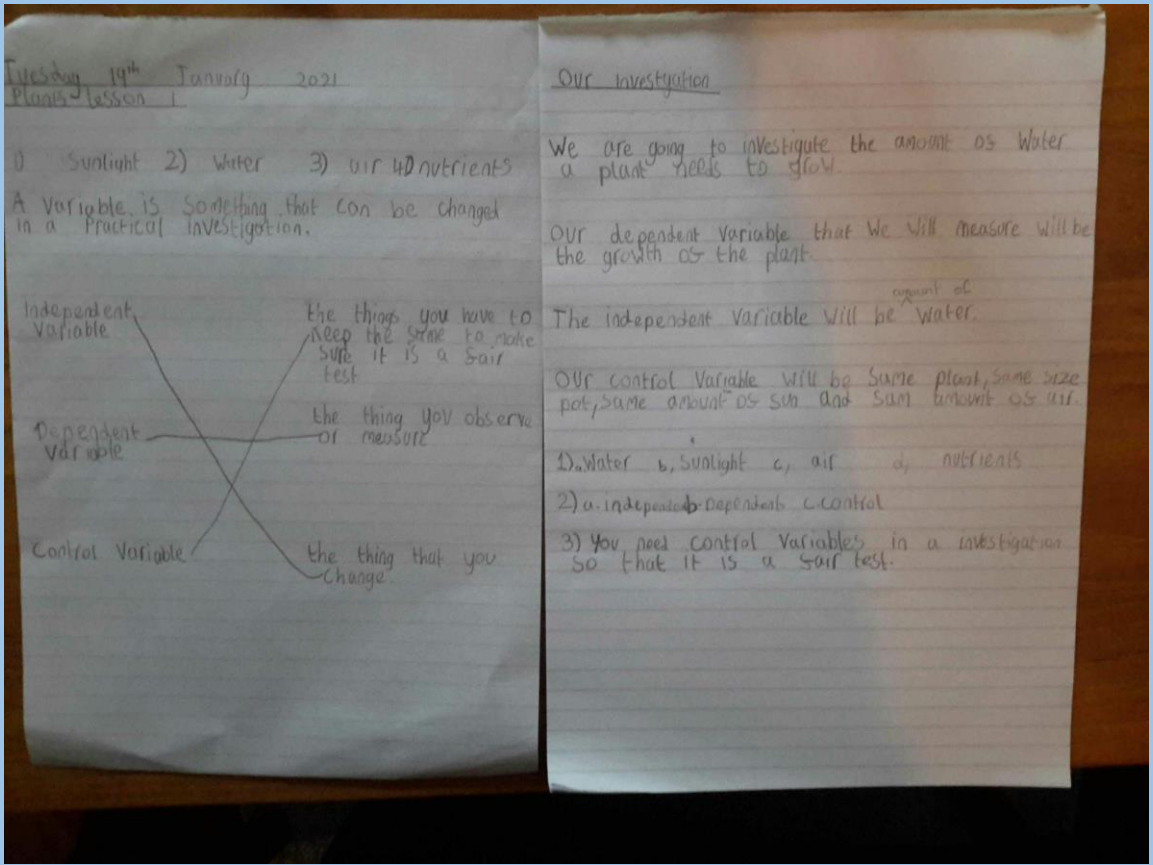 Tuesday 19th January 2021
Plants-lesson 1
1) Sunlight 2) Water 3) air 4) nutrients
A variable is something that can be changed
in a Practical investigation.
Independent
variable
the things you have to
keep the same to make
sure it is a fair
test
Dependent
variable
the thing you observe
or measure
Control variable
the thing that you
change.
Our investgation
We are going to investigate the amount of water
a plant needs to grow.
Our dependent variable that we will measure will be
the growth of the plant.
amount of
The independent variable will be water.
Our control variable will be same plant, same size
pot, same amount of sun and sam amount of air.
1)a. Water b, Sunlight c, air d, nutrients
2) a. independent b. Dependent c. control
3) You need control variables in a investigation
so that it is a fair test.